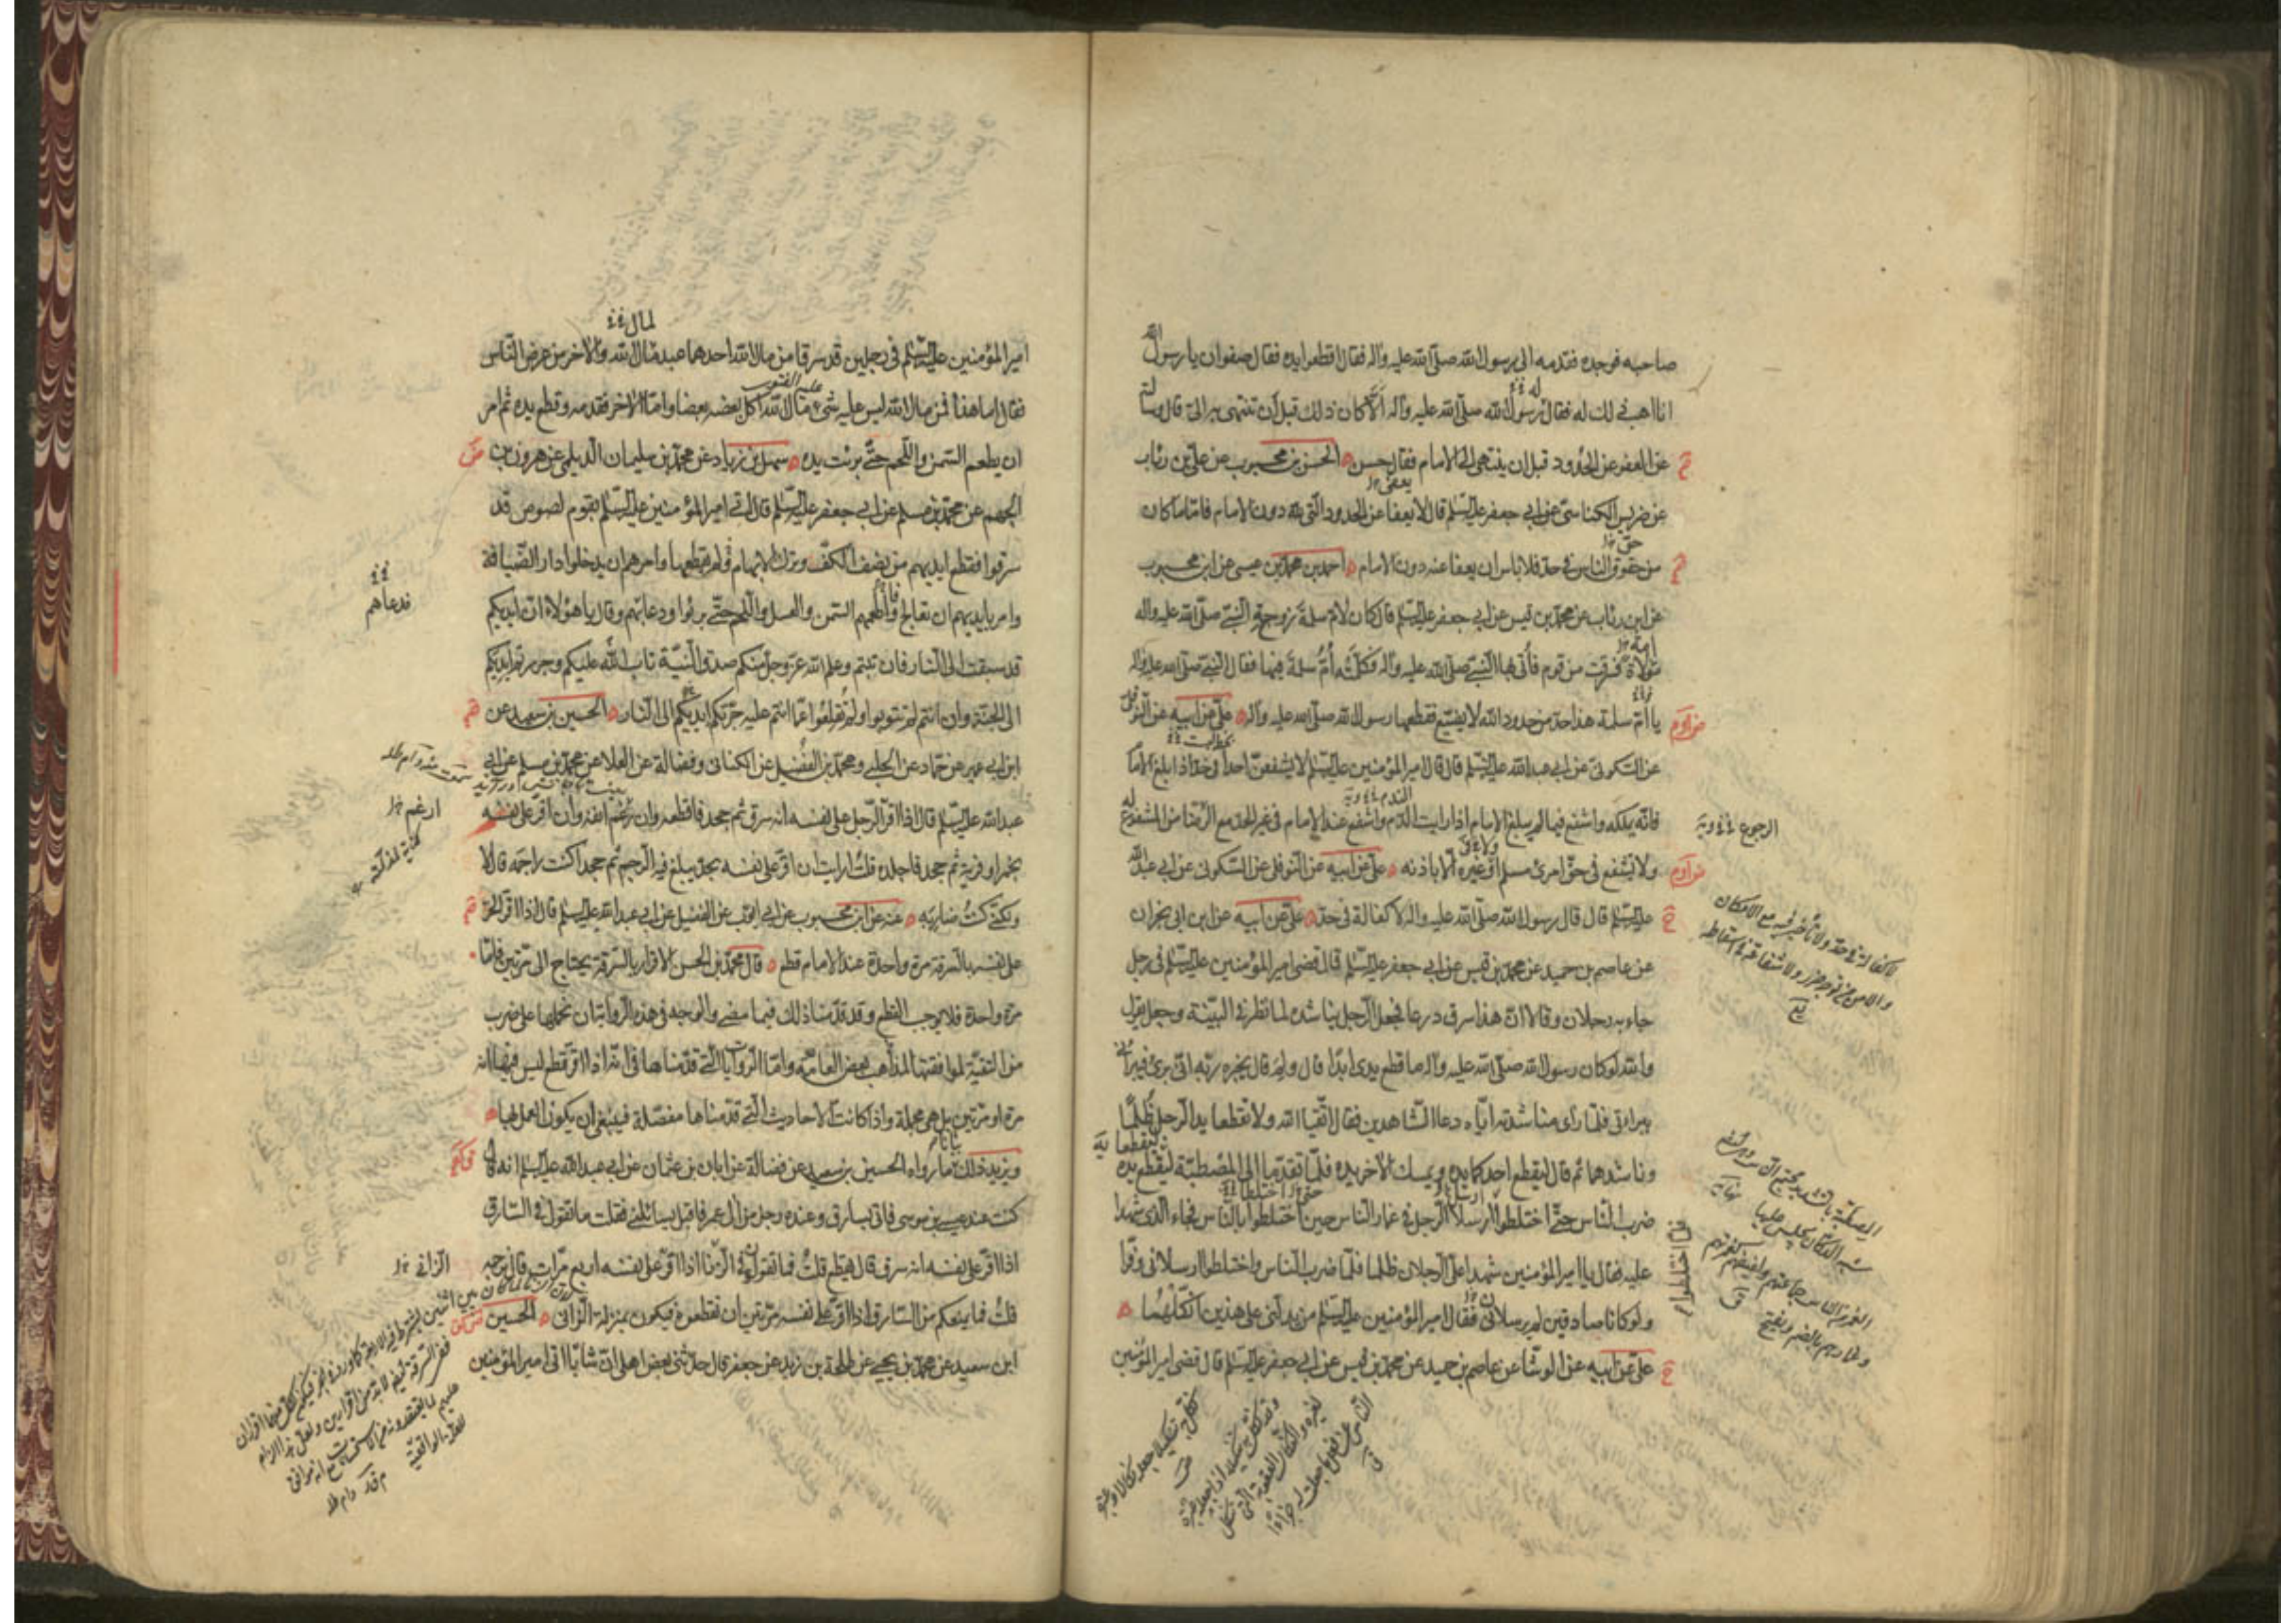 صاحبه فوجده فقدمه الى رسول الله صلى الله عليه وآله فقال اقطعوا يده فقال صفوان يا رسول الله
انا اهب ذلك له فقال رسول الله صلى الله عليه وآله الا كان ذلك قبل ان تنتهى به الىّ قال وسالته
عن العفو عن الحدود قبل ان ينتهى الى الامام فقال حسن الحسن بن محبوب عن على بن رئاب
عن ضريس الكناسى عن ابى جعفر عليه السلام قال لا يعفا عن الحدود التى لله دون الامام فاما ما كان
من حقوق الناس فى حد فلا باس ان يعفا عنه دون الامام احمد بن محمد بن عيسى عن ابن محبوب
عن ابن رئاب عن محمد بن قيس عن ابى جعفر عليه السلام قال كان لام سلمة زوجة النبى صلى الله عليه واله
مولاة فسرقت من قوم فأتى بها النبى صلى الله عليه وآله فكلمته أم سلمة فيها فقال النبى صلى الله عليه وآله
يا ام سلمة هذا حد من حدود الله لا يضيع فقطعها رسول الله صلى الله عليه وآله على عن ابيه عن النوفلى
عن السكونى عن ابى عبد الله عليه السلام قال قال امير المؤمنين عليه السلام لا يشفعن احد فى حد اذا بلغ الامام
فانه يملكه واشفع فيما لم يبلغ الامام اذا رايت الندم واشفع عند الامام فى غير الحد مع الرضا من المشفوع له
ولا تشفع فى حق امرئ مسلم او غيره الا باذنه على عن ابيه عن النوفلى عن السكونى عن ابى عبد الله
عليه السلام قال قال رسول الله صلى الله عليه واله لا كفالة فى حد على عن ابيه عن ابن ابى نجران
عن عاصم بن حميد عن محمد بن قيس عن ابى جعفر عليه السلام قال قضى امير المؤمنين عليه السلام فى رجل
جاء به رجلان وقالا ان هذا سرق درعا فجعل الرجل يناشده لما نظر فى البينة وجعل يقول
والله لو كان رسول الله صلى الله عليه وآله ما قطع يدى ابدا قال ولم قال يخبره ربه انى برئ فيبرأنى
ببراءتى فلما رأى مناشدته اياه دعا الشاهدين فقال اتقيا الله ولا تقطعا يد الرجل ظلما
وناشدهما ثم قال ليقطع احدكما يده ويمسك الآخر يده فلما تقدما الى المصطبة ليقطع يده
ضرب الناس حتى اختلطوا ارسلا الرجل فى غمار الناس حين اختلطوا بالناس فجاء الذى شهدا
عليه فقال يا امير المؤمنين شهد علىّ الرجلان ظلما فلما ضرب الناس واختلطوا ارسلانى وفرّا
ولو كانا صادقين لم يرسلانى فقال امير المؤمنين عليه السلام من يدلنى على هذين انكلهما
على عن ابيه عن الوشا عن عاصم بن حميد عن محمد بن قيس عن ابى جعفر عليه السلام قال قضى امير المؤمنين
الرجوع
لا كفالة فى حد ولا تأخير فيه مع الامكان
والامن من توجه ضرر ولا شفاعة فى اسقاطه
لمال
امير المؤمنين عليه السلام فى رجلين قد سرقا من مال الله احدهما عبد مال الله والاخر من عرض الناس
فقال اما هذا فمن مال الله ليس عليه شئ مال الله اكل بعضه بعضا واما الآخر فقدمه وقطع يده ثم امر
ان يطعم السمن واللحم حتى برئت يده سهل بن زياد عن محمد بن سليمان الديلمى عن هرون بن
الجهم عن محمد بن مسلم عن ابى جعفر عليه السلام قال اتى امير المؤمنين عليه السلام بقوم لصوص قد
سرقوا فقطع ايديهم من نصف الكف وترك الابهام ولم يقطعها وامرهم ان يدخلوا دار الضيافة
وامر بايديهم ان تعالج فاطعمهم السمن والعسل واللحم حتى برئوا ودعاهم وقال يا هؤلاء ان ايديكم
قد سبقت الى النار فان تبتم وعلم الله عز وجل منكم صدق النية تاب الله عليكم وجررتم ايديكم
الى الجنة وان انتم لم تتوبوا ولم تقلعوا عما انتم عليه جرتكم ايديكم الى النار الحسين بن سعيد عن
ابن ابى عمير عن حماد عن الحلبى ومحمد بن الفضيل عن الكنانى وفضالة عن العلا عن محمد بن مسلم عن ابى
عبد الله عليه السلام قال اذا اقر الرجل على نفسه انه سرق ثم جحد فاقطعه وان رغم انفه وان اقر على نفسه
بخمر او فرية ثم جحد فاجلده قلت ارايت ان اقر على نفسه بحد يبلغ فيه الرجم ثم جحد اكنت راجمه قال لا
ولكنى كنت ضاربه عنه عن ابن محبوب عن ابى ايوب عن الفضيل عن ابى عبد الله عليه السلام قال اذا اقر الحر
على نفسه بالسرقة مرة واحدة عند الامام قطع قال محمد بن الحسن الاقرار بالسرقة يحتاج الى مرتين فاما
مرة واحدة فلا يوجب القطع وقد قدمنا ذلك فيما مضى والوجه فى هذه الروايتان نحملها على ضرب
من التقية لموافقتها لمذاهب بعض العامة واما الروايات التى قدمناها فى انه اذا اقر قطع ليس فيها انه
مرة او مرتين بل هى مجملة واذا كانت الاحاديث التى قدمناها مفصلة فينبغى ان يكون العمل بها
ويزيد ذلك بيانا ما رواه الحسين بن سعيد عن فضالة عن ابان بن عثمان عن ابى عبد الله عليه السلام انه قال
كنت عند عيسى بن موسى فاتى بسارق وعنده رجل من آل عمر فاقبل يسائلنى فقلت ما تقول فى السارق
اذا اقر على نفسه انه سرق قال يقطع قلت فما تقول فى الزنا اذا اقر على نفسه اربع مرات قال نرجمه
قلت فما يمنعكم من السارق اذا اقر على نفسه مرتين ان تقطعوه فيكون بمنزلة الزانى الحسين
ابن سعيد عن محمد بن يحيى عن طلحة بن زيد عن جعفر قال حدثنى بعض اهلى ان شابا اتى امير المؤمنين
فدعاهم
ارغم
الزانى